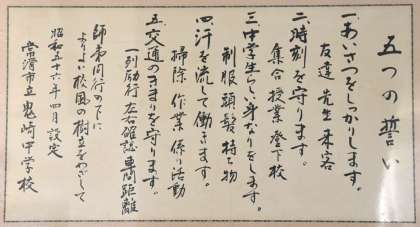 五つの誓い
一、あいさつをしっかりします。
友達 先生 来客
二、時刻を守ります。
集合 授業 登下校
三、中学生らしい身なりをします。
制服 頭髪 持ち物
四、汗を流して働きます。
掃除 作業 係り活動
五、交通のきまりを守ります。
一列励行 左右確認 車間距離
師弟同行のもとに
よりよい校風の樹立をめざして
昭和五十六年四月設定
常滑市立鬼崎中学校